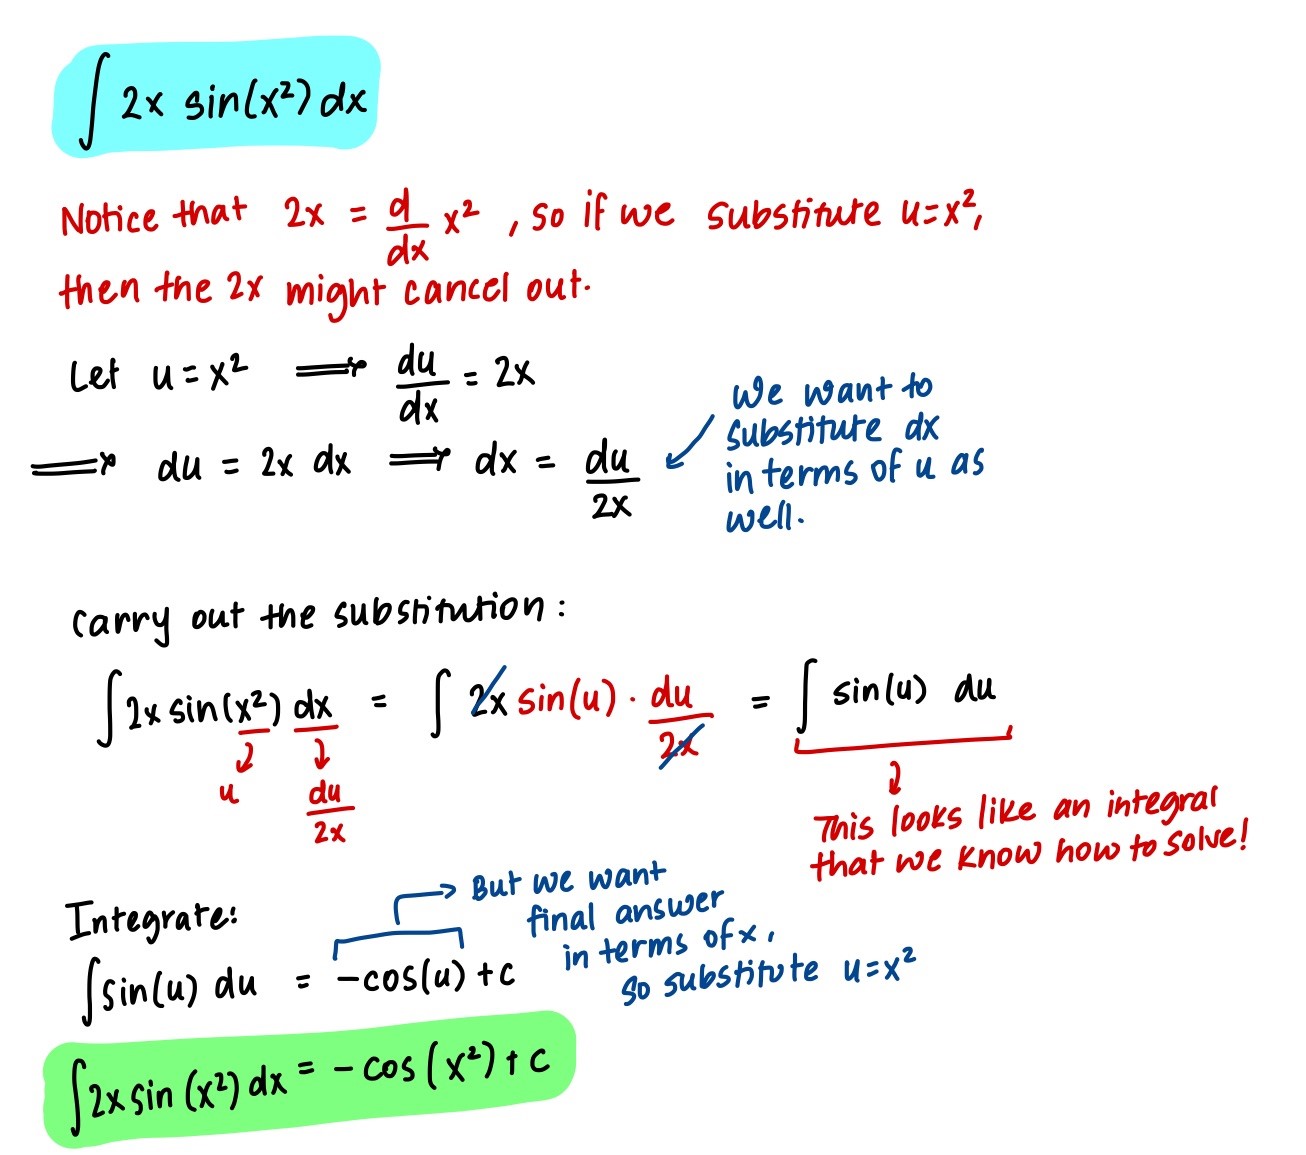 ∫ 2x sin(x²) dx
Notice that 2x = d/dx x² , so if we substitute u=x²,
then the 2x might cancel out.
Let u = x² ⟹ du/dx = 2x
⟹ du = 2x dx ⟹ dx = du/2x
We want to
substitute dx
in terms of u as
well.
Carry out the substitution:
∫ 2x sin(x²) dx = ∫ 2x sin(u) · du/2x = ∫ sin(u) du
u du/2x
This looks like an integral
that we know how to solve!
Integrate:
But we want
final answer
in terms of x,
so substitute u=x²
∫ sin(u) du = -cos(u) + c
∫ 2x sin (x²) dx = - cos (x²) + c